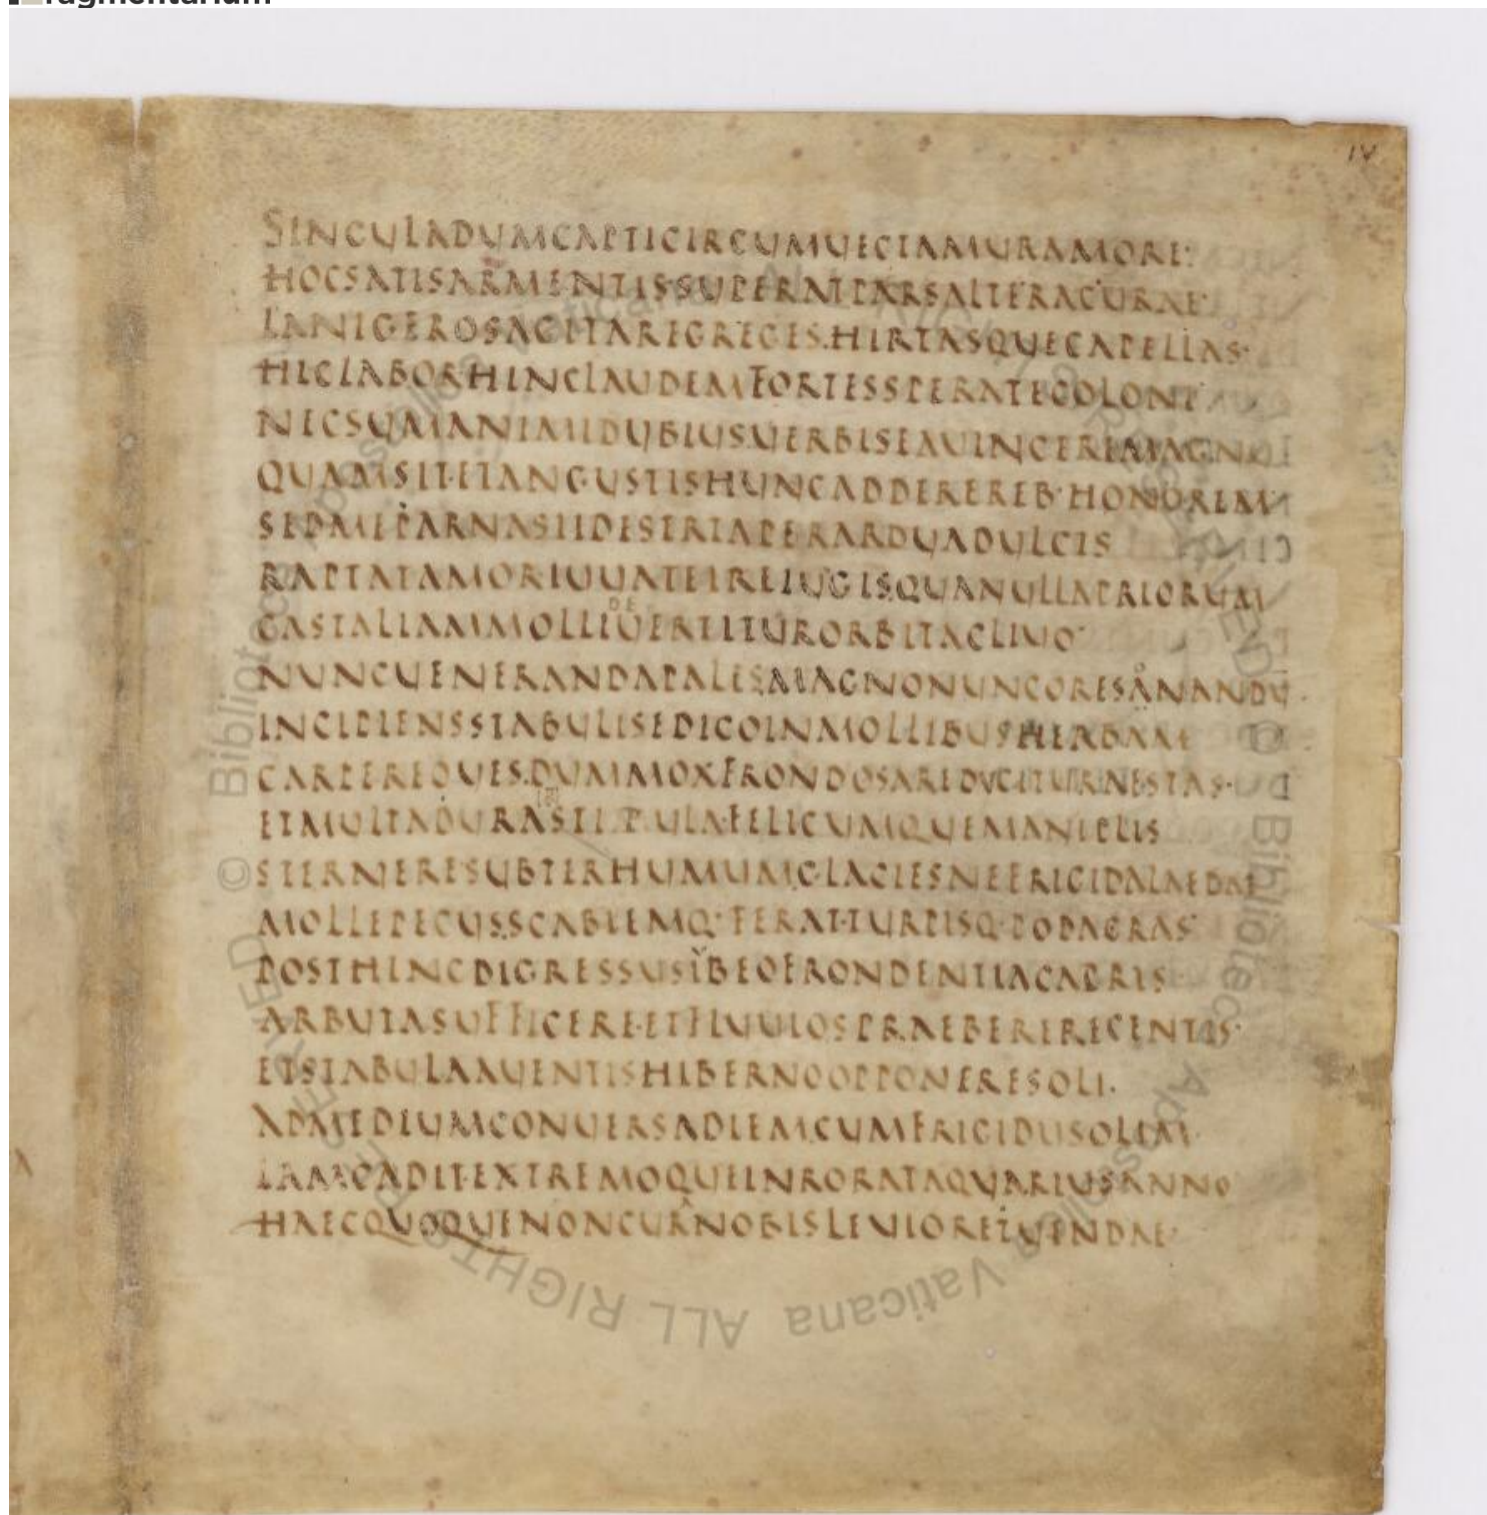 ragmentarium
IV
SINGULADUMCAPTICIRCUMUECTAMURAMORE·
HOCSATISARMENTISSUPERATPARSALTERACURAE
LANIGEROSAGITAREGREGES·HIRTASQUECAPELLAS·
HICLABORHINCLAUDEMFORTESSPERATECOLONI
NECSUMANIMIDUBIUSUERBISEAUINCEREMAGNU
QUAMSIT·ETANGUSTISHUNCADDEREREB·HONOREM
SEDMEPARNASIIDESERTAPERARDUADULCIS
RAPTATAMORIUUATEIREIUGISQUANULLAPRIORUM
CASTALIAMMOLLI
DE
UERTITURORBITACLIUO·
NUNCUENERANDAPALESMAGNONUNCORESANANDU·
INCIPIENSSTABULISEDICOINMOLLIBUSHERBAM
CARPEREOUES·DUMMOXFRONDOSAREDUCITURAESTAS·
ETMULTADURASTIPULAFELICUMQUEMANIPLIS
STERNERESUBTERHUMUMGLACIESNEFRIGIDALAEDAT
MOLLEPECUSSCABIEMQ·FERAT·TURPISQ·PODAGRAS
POSTHINCDIGRESSUSIUBEOFRONDENTIACAPRIS
ARBUTASUFFICERE·ETFLUUIOSPRAEBERERECENTIS·
ETSTABULAAUENTISHIBERNOOPPONERESOLI·
ADMEDIUMCONUERSADIEM·CUMFRIGIDUSOLIM·
IAMCADIT·EXTREMOQUEINRORATAQUARIUSANNO
HAECQUOQUENONCURANOBISLEUIORETUENDAE·
© Biblioteca Apostolica Vaticana ALL RIGHTS RESERVED